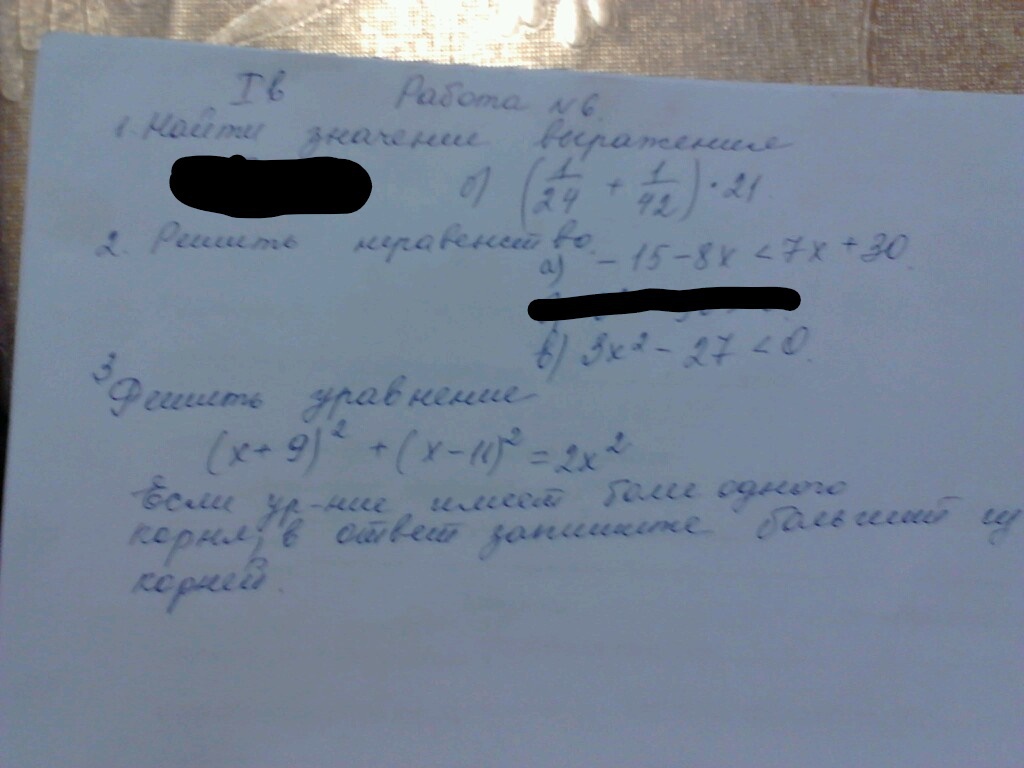 Iв Работа №6.
1. Найти значение выражения
б) (1/24 + 1/42) · 21
2. Решить неравенство.
а) -15-8x < 7x + 30.
в) 3x² - 27 < 0.
3 Решить уравнение
(x+9)² + (x-11)² = 2x²
Если ур-ние имеет более одного
корня, в ответ запишите больший из
корней.